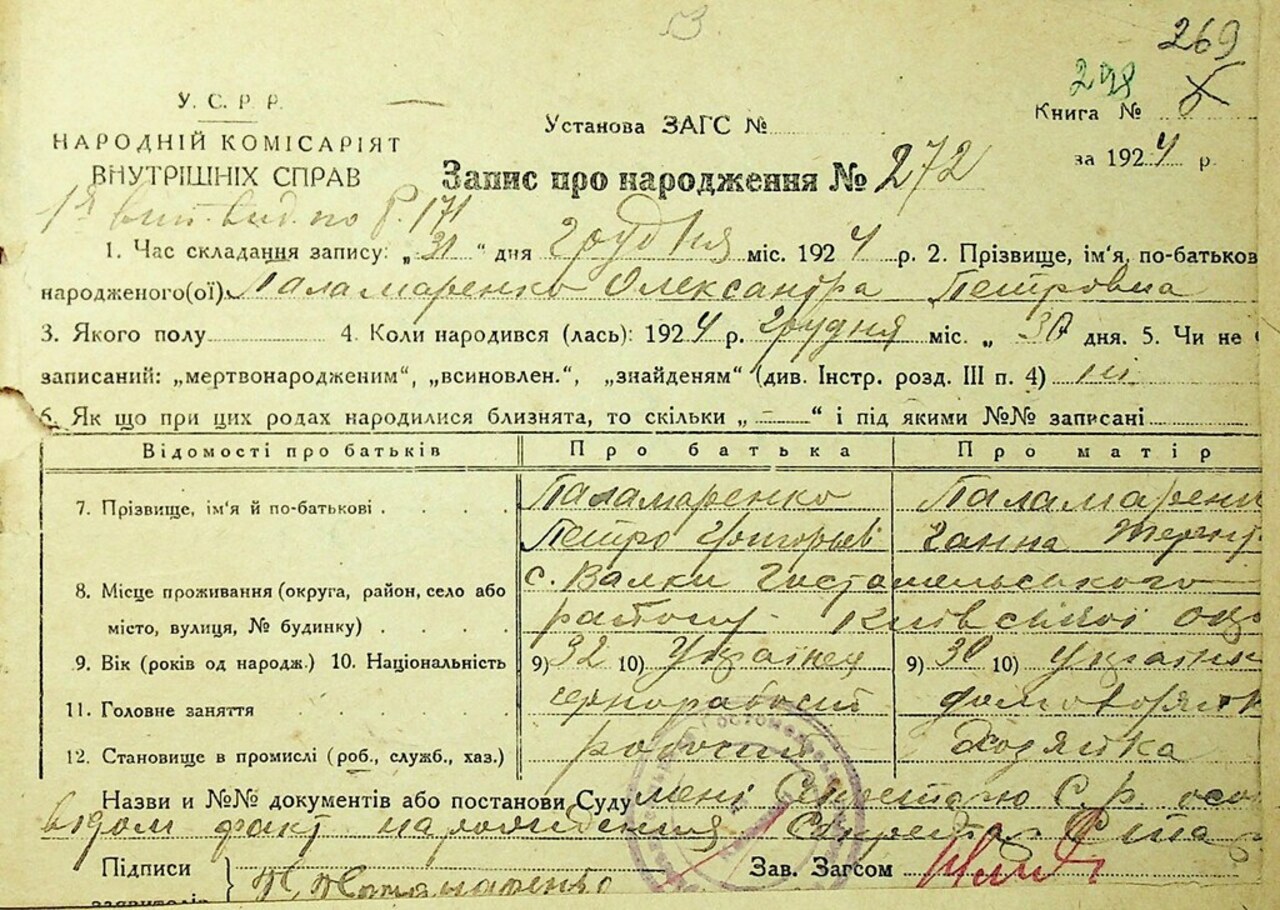 53.
269
298
У. С. Р. Р.
Установа ЗАГС №
Книга № 6
НАРОДНІЙ КОМІСАРІЯТ
за 1924 р.
ВНУТРІШНІХ СПРАВ
Запис про народження № 272
вид. по Р. 171
1. Час складання запису: „31“ дня грудня міс. 1924 р. 2. Прізвище, ім'я, по-батьков
народженого(ої) Паламаренко Олександра Петровна
3. Якого полу 4. Коли народився (лась): 1924 р. грудня міс. „ 30 дня. 5. Чи не
записаний: „мертвонародженим“, „всиновлен.“, „знайденям“ (див. Інстр. розд. III п. 4) ні
6. Як що при цих родах народилися близнята, то скільки „ — “ і під якими №№ записані
Відомості про батьків Про батька Про матір
7. Прізвище, ім'я й по-батькові Паламаренко Паламаренк
Петро Григорьев Ганна
8. Місце проживання (округа, район, село або с. Валки Гостомельського
місто, вулиця, № будинку) району Київської окр
9. Вік (років од народж.) 10. Національність 9) 32 10) Українец 9) 30 10) Українк
11. Головне заняття чернорабочий
12. Становище в промислі (роб., служб., хаз.) рабочий Хозяйка
Назви и №№ документів або постанови Суду мені Секретарю С.р. осо
відом факт народження
Підписи Зав. Загсом
заявителів П. Паламаренко